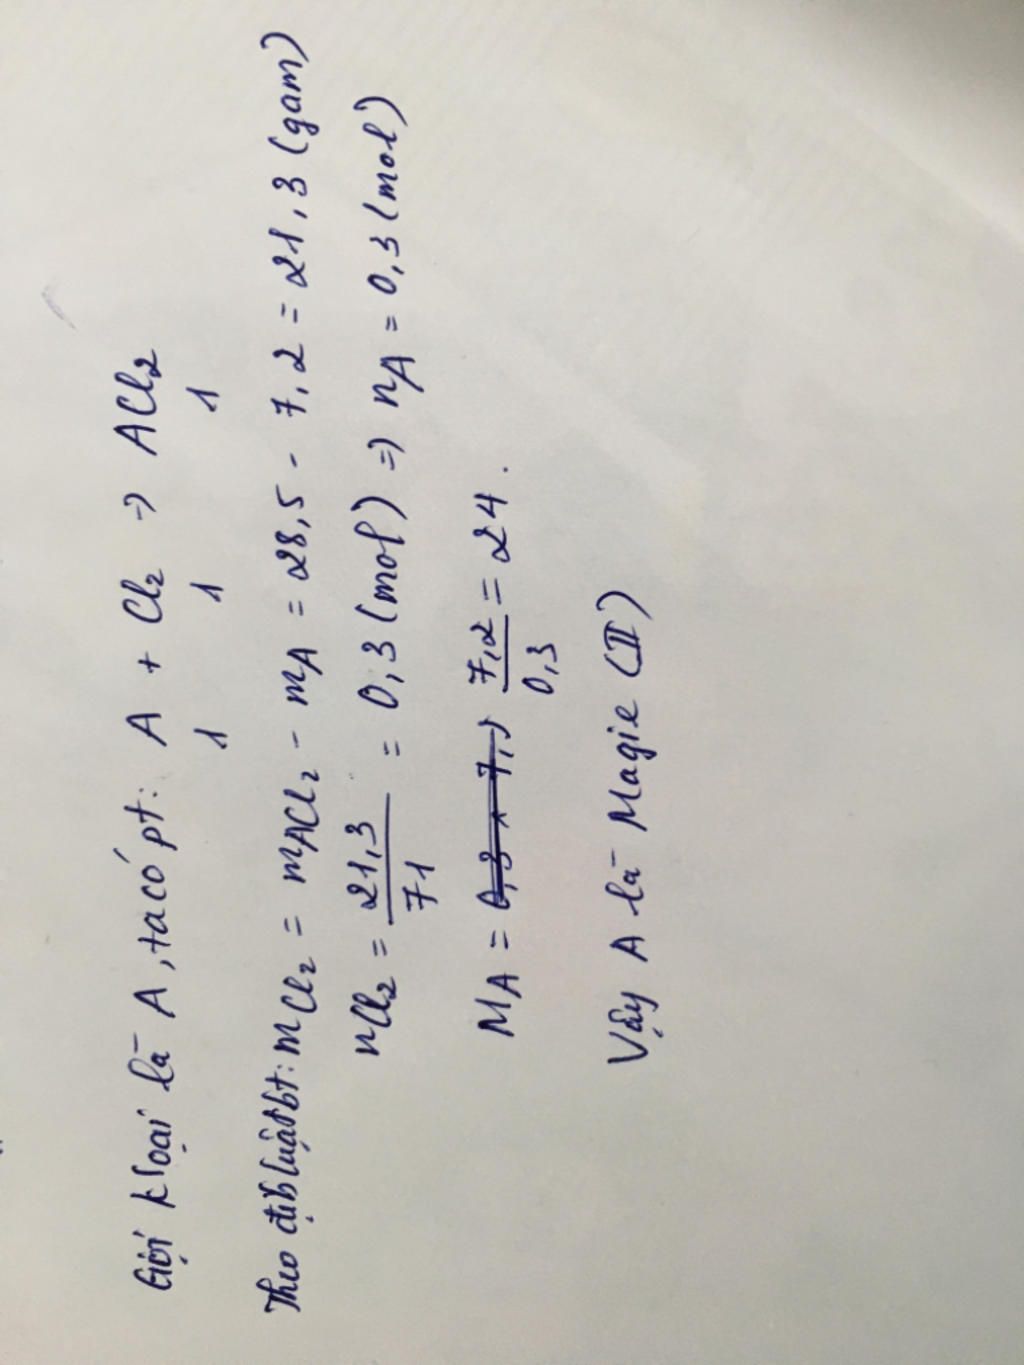 Gọi kloại là A, ta có pt: A + Cl2 → ACl2
1 1 1
Theo địnhluậtbt: mCl2 = mACl2 - mA = 28,5 - 7,2 = 21,3 (gam)
nCl2 = 21,3/71 = 0,3 (mol) => nA = 0,3 (mol)
MA = 7,2/0,3 = 24.
Vậy A là Magie (II)